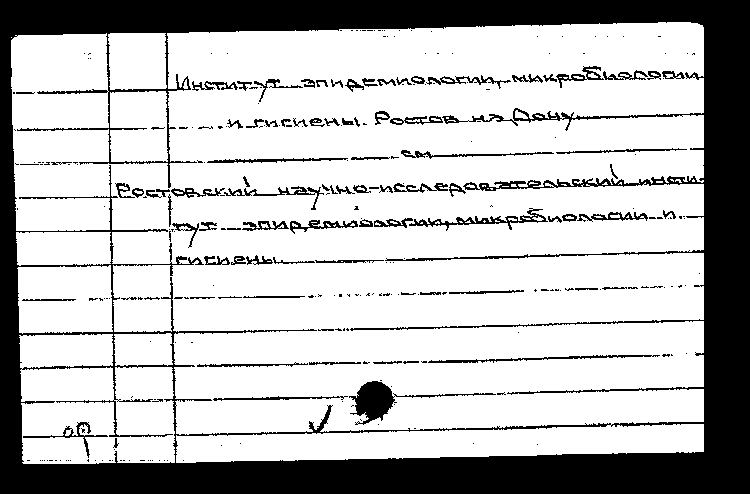 Институт эпидемиологии, микробиологии
и гигиены. Ростов на Дону.
см
Ростовский научно-исследовательский инсти-
тут эпидемиологии, микробиологии и
гигиены.